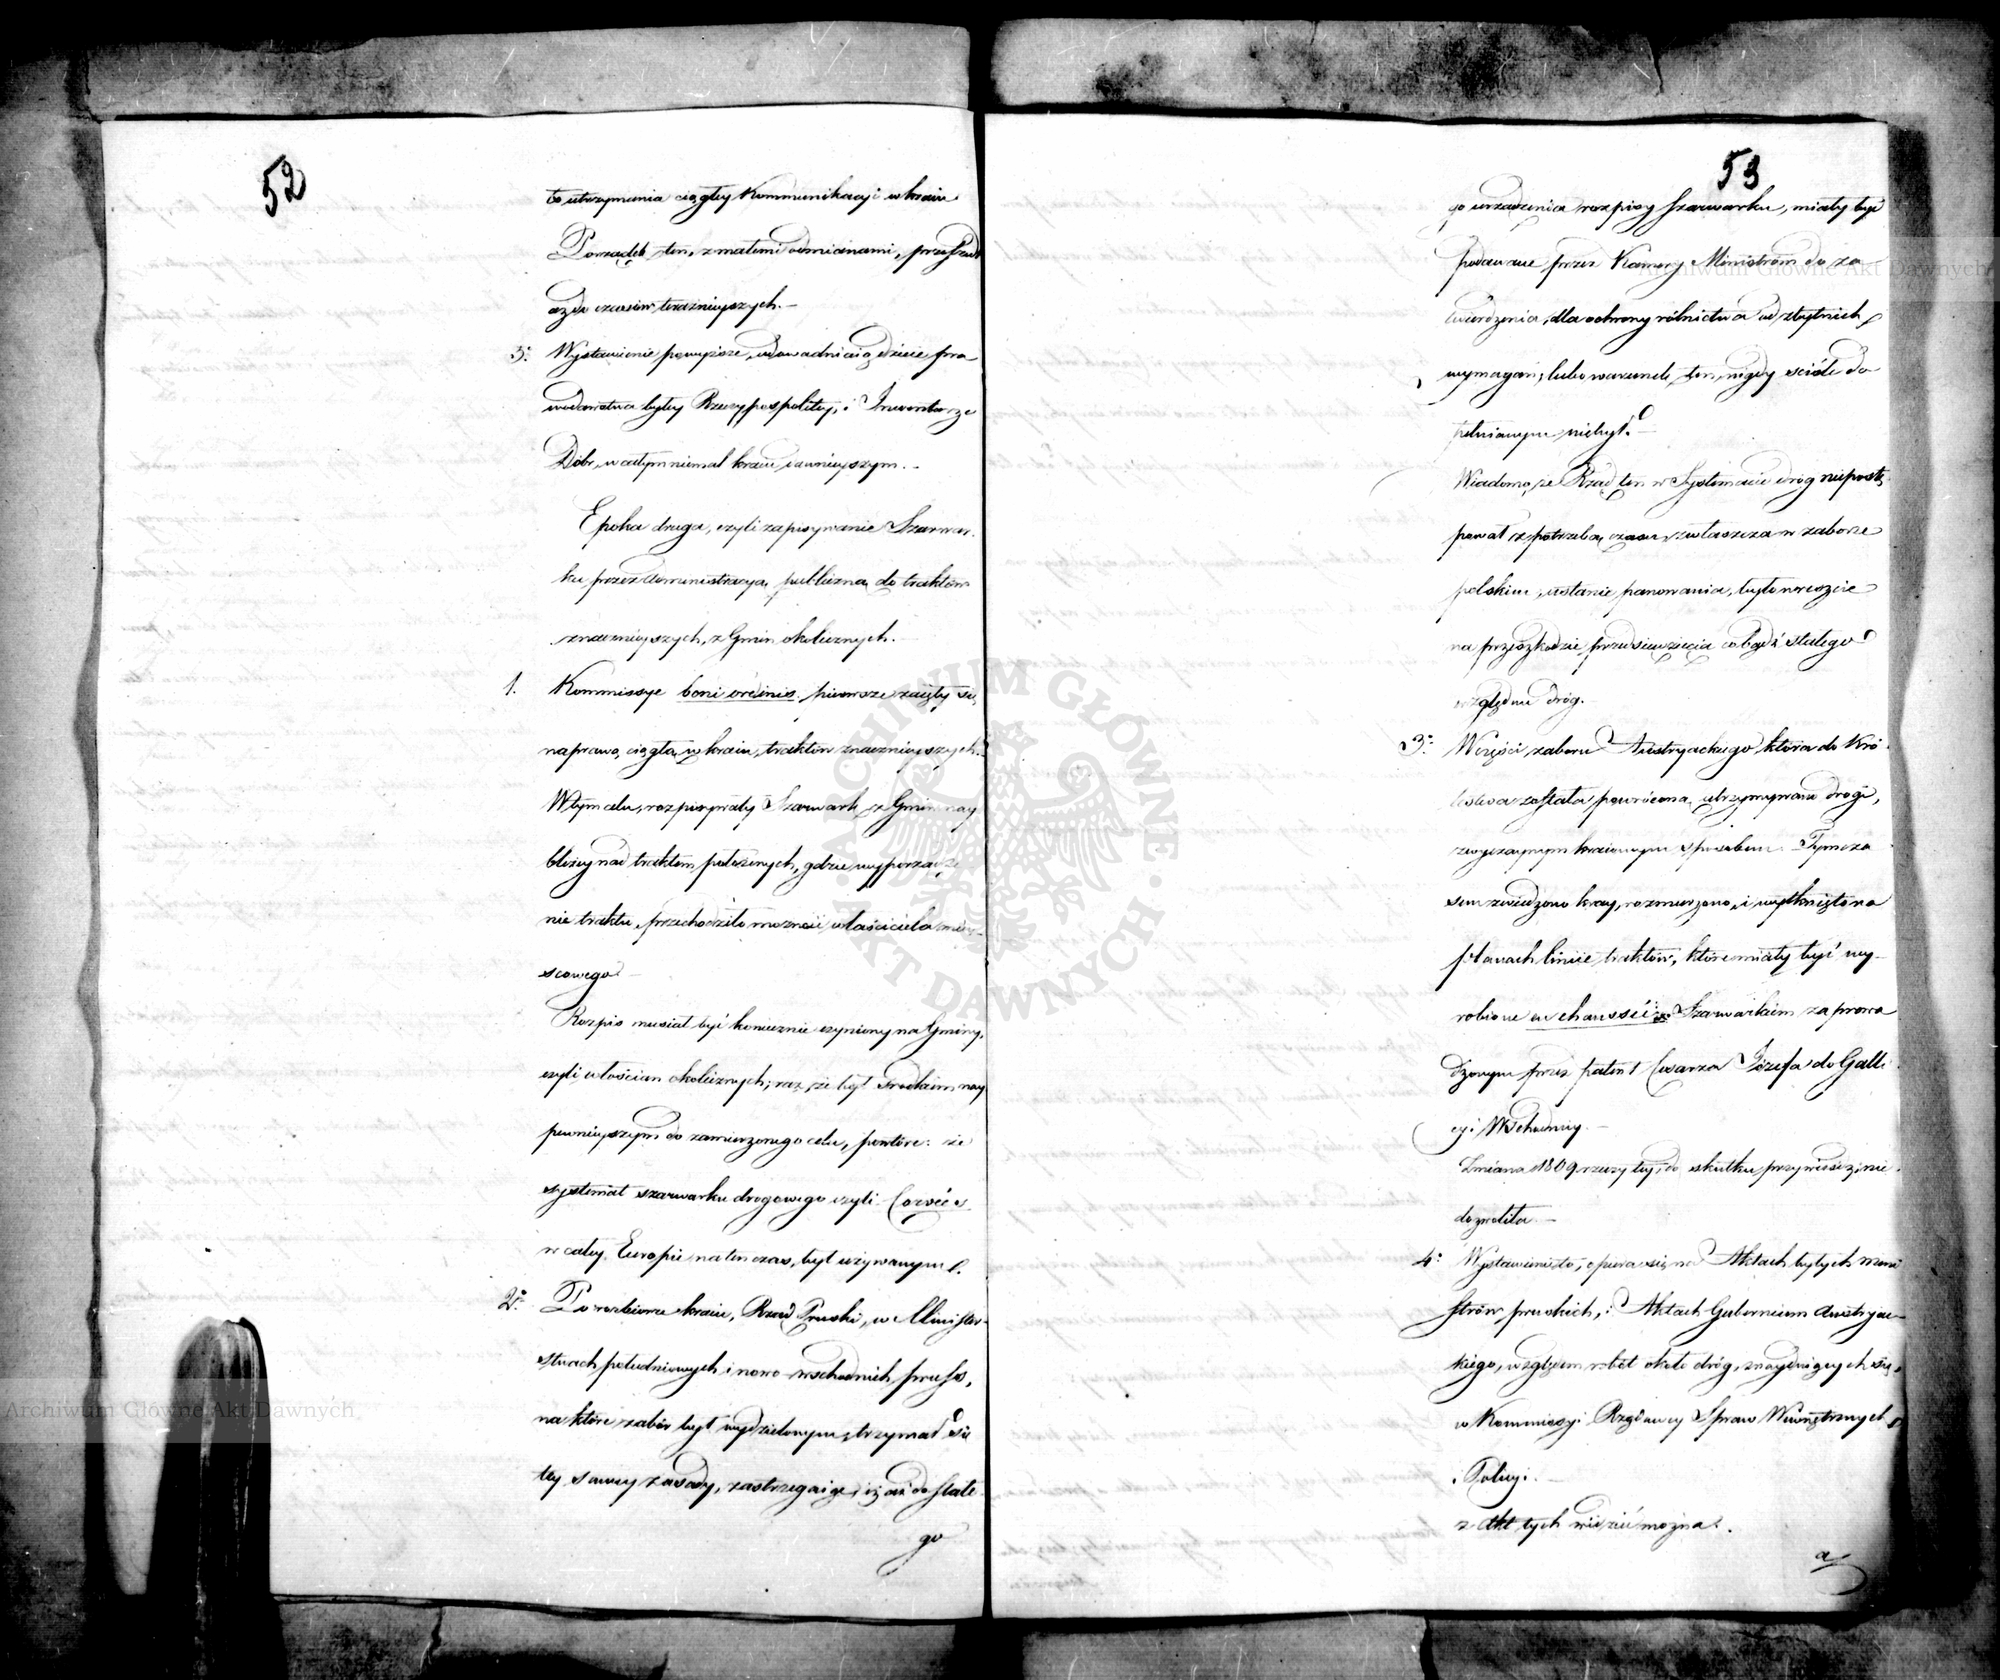 52
to utrzymania ciągłey Kommunikacyi w kraiu
Porządek ten, z małemi odmianami, przeszedł
aż do czasów teraźnieyszych. —
3° Wystawienie powyższe, udowadniaią dzieie pra
wodawstwa byłey Rzeczypospolitey, i Inwentarze
Dóbr, w całym niemal kraiu dawnieyszym. —
Epoka druga, czyli zapisywanie Szarwar
ku przez Administracyą publiczną do traktów
znacznieyszych, z Gmin okolicznych. —
1. Kommissye boni ordinis pierwsze zaięły się
naprawą ciągłą w kraiu, traktów znacznieyszych.
W tym celu, rozpisywały Szarwark z Gmin nay
bliżey nad traktem położonych, gdzie wyporządze
nie traktu, przechodziło możność właściciela miey
scowego —
Rozpis musiał być koniecznie czyniony na Gminy,
czyli włościan okolicznych; raz, że był środkiem nay
pewnieyszym do zamierzonego celu, powtóre: że
systemat szarwarku drogowego czyli Corvées
w całey Europie naten czas, był używanym.
2° Po rozbiorze kraiu, Rząd Pruski, w Minister
stwach południowych i nowo-wschodnich pruss,
na które zabór był wydzielonym, trzymał się
tey samey zasady, zastrzegaiąc, iż aż do stałe
go
53
go urządzenia rozpisy Szarwarku, miały być
podawane przez Kamery Ministrom do za
twierdzenia, dla ochrony rólnictwa od zbytnich
wymagań; lubo warunek ten, nigdy ściśle do
pełnianym niebył. —
Wiadomo, że Rząd ten w Systemacie dróg niepostę
pował z potrzebą czasu, zwłaszcza w zaborze
polskim, ustanie panowania, było nareszcie
na przeszkodzie przedsięwzięcia cobądź stałego
względem dróg.
3° W części zaboru Austryackiego która do Kró
lestwa została powrócona, utrzymywano drogi,
zwyczaynym kraiowym sposobem. Tymcza
sem zwiedzono kray, rozmierzono, i wytknięto na
planach linie traktów, które miały być wy
robione en chaussée Szarwarkiem zaprowa
dzonym przez patent Cesarza Józefa do Galli
cyi Wschodniey. —
Zmiana 1809 rzeczy tey, do skutku przywieść, nie
dozwoliła. —
4° Wystawienie to, opiera się na Aktach byłych mini
strów pruskich, i Aktach Gubernium Austryac
kiego, względem robót około dróg, znayduiących się
w Kommissyi Rządowey Spraw Wewnętrznych
i Policyi. —
z Akt tych widzieć można.
a/
Archiwum Główne Akt Dawnych
ARCHIWUM GŁÓWNE · AKT DAWNYCH ·
Archiwum Główne Akt Dawnych